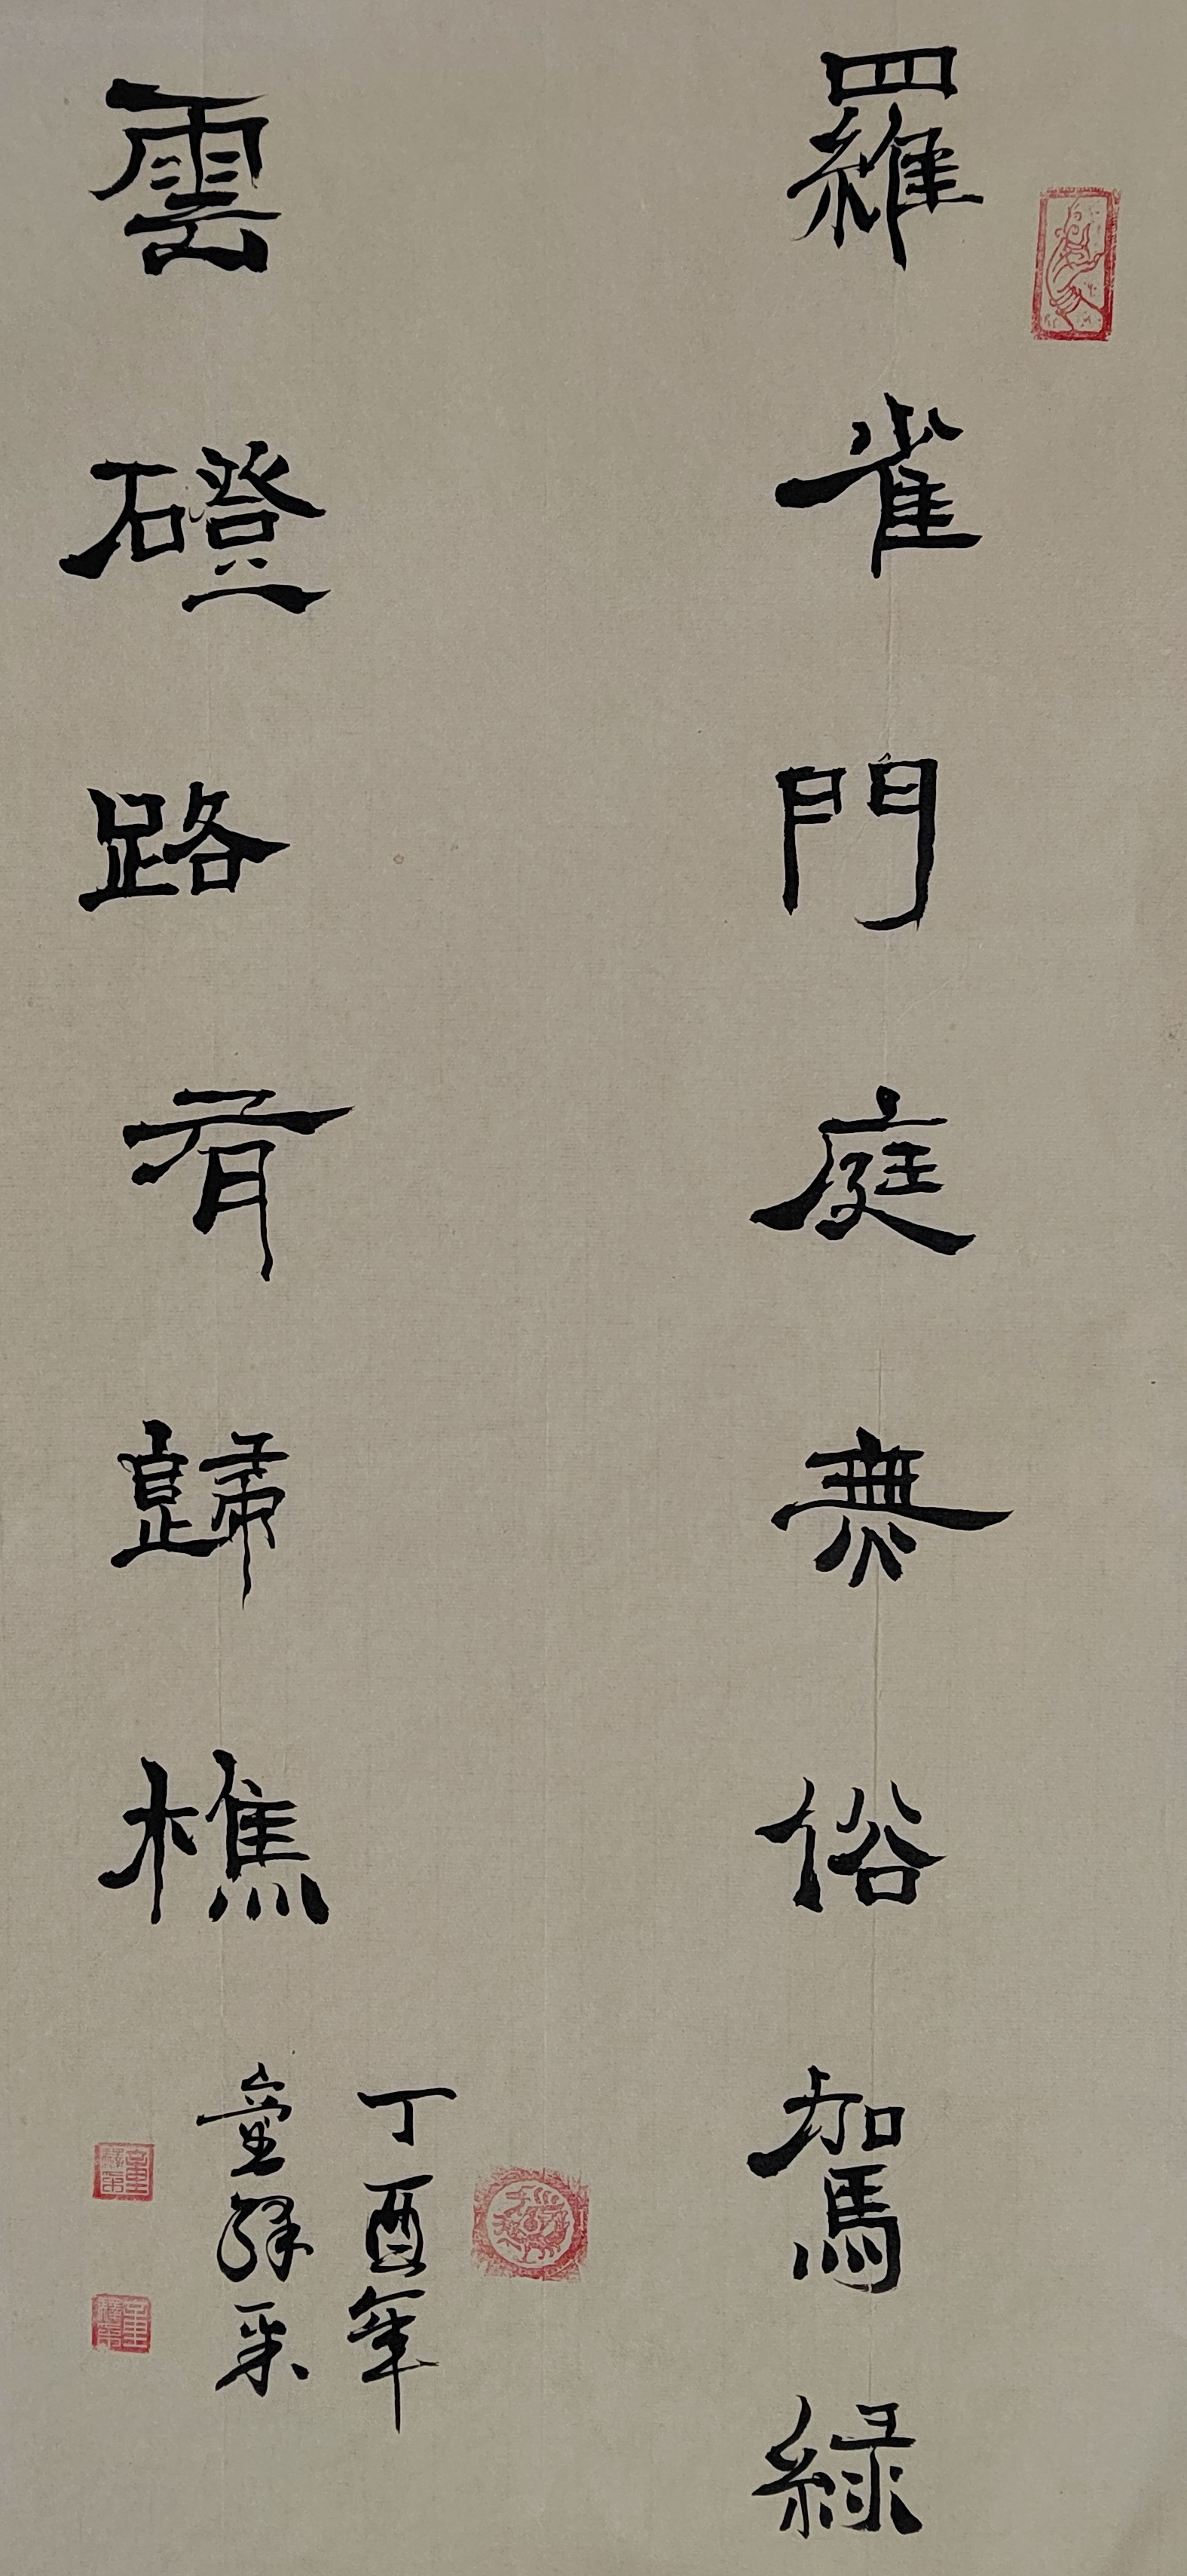 羅雀門庭無俗駕綠
雲磴路有歸樵
丁酉年